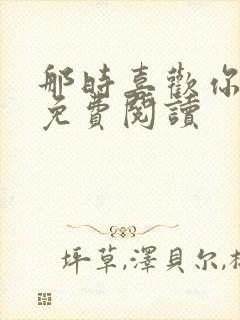 那時喜歡你
免費閱讀
坪草,澤貝尔,